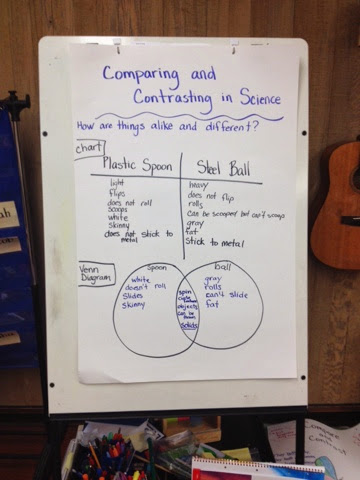 Comparing and
Contrasting in Science
How are things alike and different?
chart
Plastic Spoon
light
flips
does not roll
scoops
white
skinny
does not stick to
metal
Steel Ball
heavy
does not flip
rolls
Can be scooped but can't scoop
gray
fat
stick to metal
Venn
Diagram
spoon
white
doesn't roll
slides
skinny
spin
can be
objects
can be
solids
ball
gray
rolls
can't slide
fat
Compare
and
Contrast